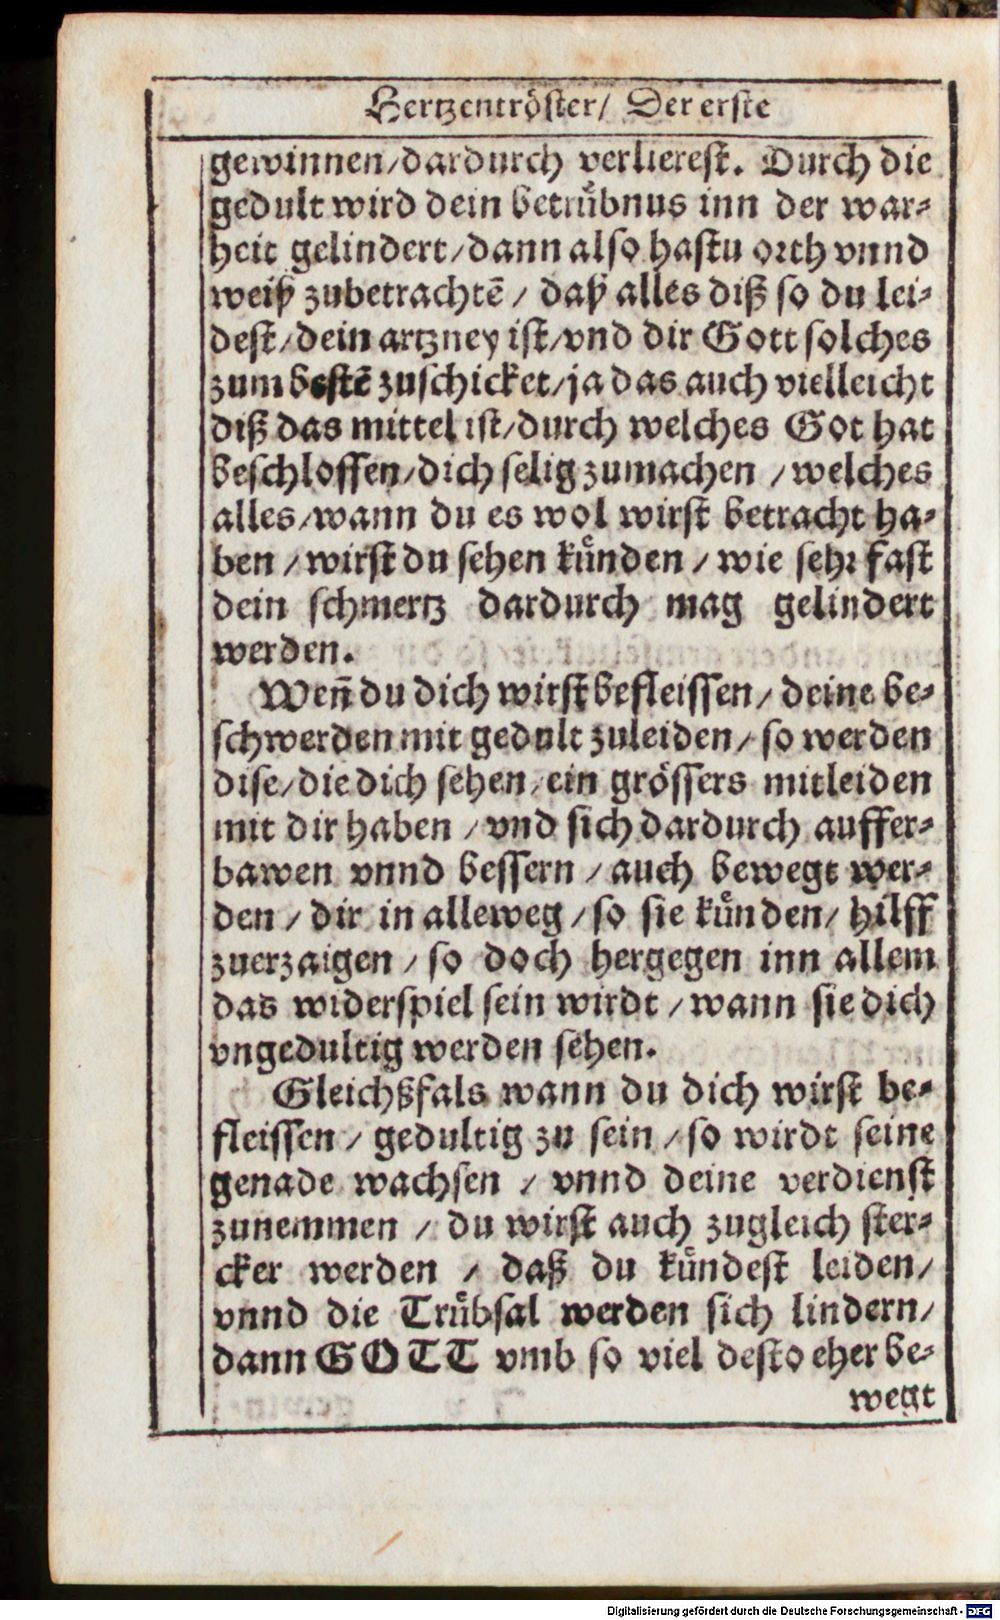 Hertzentröster/ Der erste
gewinnen/dardurch verlierest. Durch die
gedult wird dein betrübnus inn der war⸗
heit gelindert/dann also hastu orth vnnd
weiß zubetrachtē / daß alles diß so du lei⸗
dest/dein artzney ist/vnd dir Gott solches
zum bestē zuschicket/ja das auch vielleicht
diß das mittel ist/durch welches Got hat
beschlossen/dich selig zumachen /welches
alles/wann du es wol wirst betracht ha⸗
ben / wirst du sehen künden / wie sehr fast
dein schmertz dardurch mag gelindert
werden.
Wen̄ du dich wirst befleissen/ deine be⸗
schwerden mit gedult zuleiden/ so werden
dise/die dich sehen/ein grössers mitleiden
mit dir haben /vnd sich dardurch auffer⸗
bawen vnnd bessern /auch bewegt wer⸗
den / dir in alleweg / so sie künden/ hilff
zuerzaigen / so doch hergegen inn allem
das widerspiel sein wirdt / wann sie dich
vngedultig werden sehen.
Gleichßfals wann du dich wirst be⸗
fleissen / gedultig zu sein / so wirdt seine
genade wachsen / vnnd deine verdienst
zunemmen / du wirst auch zugleich ster⸗
cker werden / daß du kündest leiden/
vnnd die Trübsal werden sich lindern/
dann GOTT vmb so viel desto eher be⸗
wegt
Digitalisierung gefördert durch die Deutsche Forschungsgemeinschaft - DFG